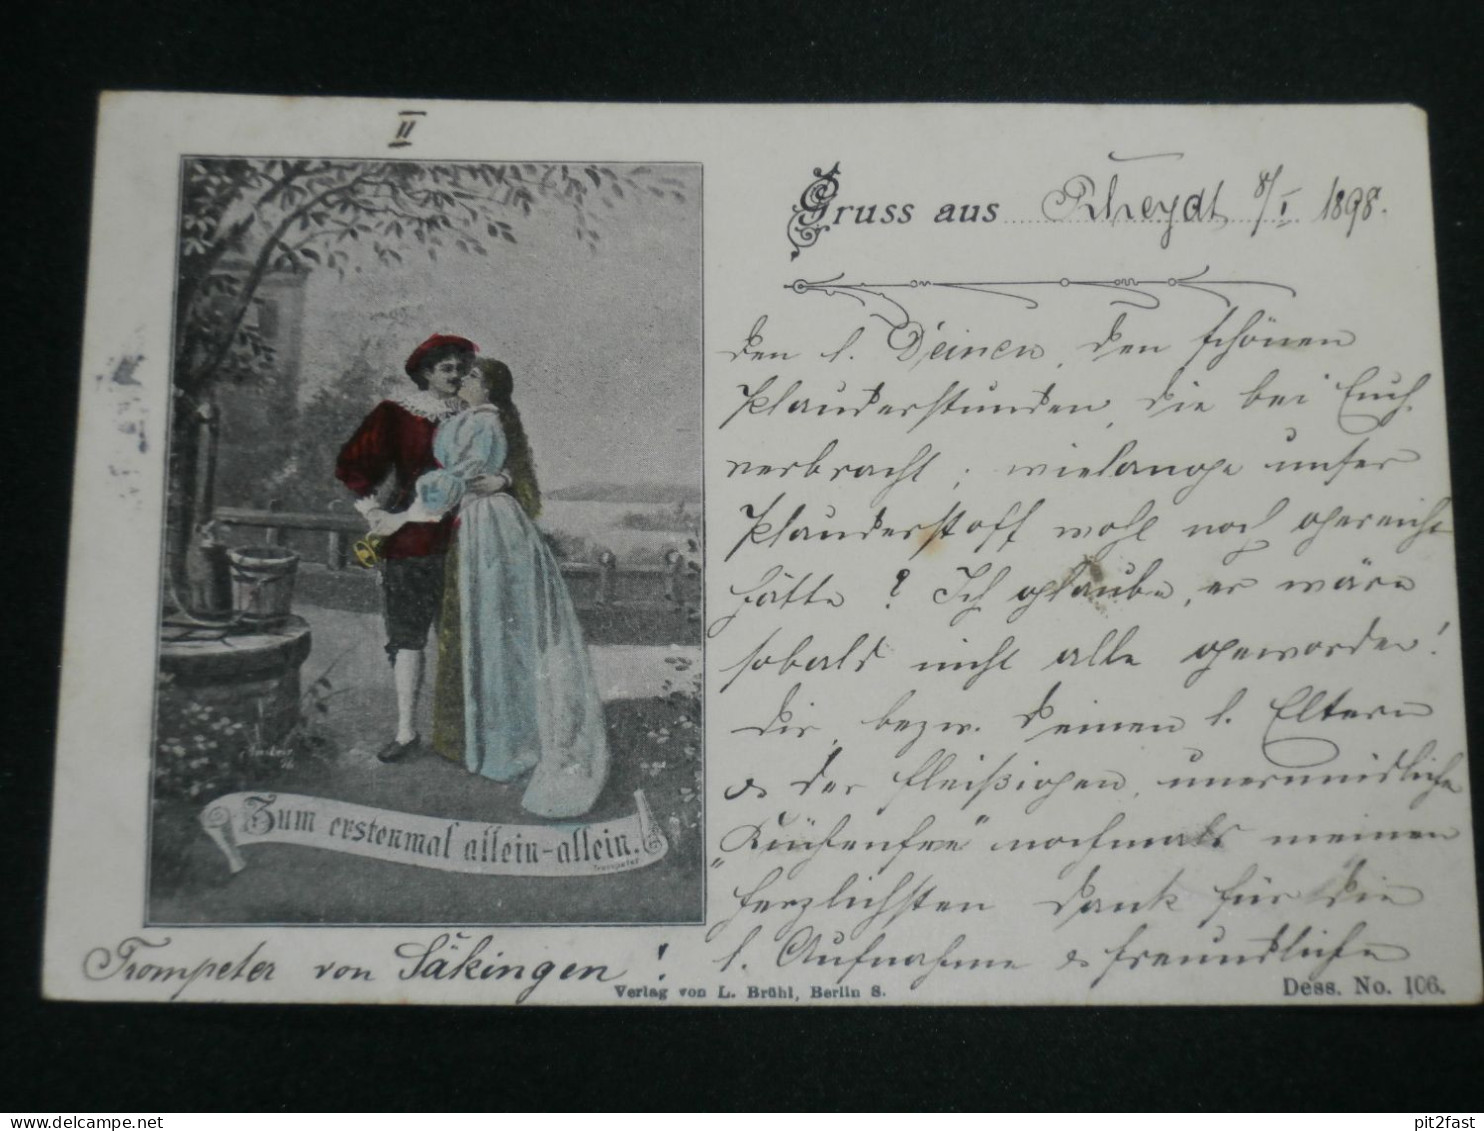 II
Gruss aus Rheydt 8/I 1898.
den l. Deinen, den schönen
Plauderstunden, die bei Euch
verbracht; wielange unser
Plauderstoff wohl noch gereicht
hätte? Ich glaube, er wäre
sobald nicht alle geworden!
Dir, bezw. Deinen l. Eltern
& der fleißigen, unermüdliche
"Küchenfee" nochmals meinen
herzlichsten Dank für die
l. Aufnahme & freundliche
Zum erstenmal allein-allein.
Trompeter
Trompeter von Säkingen!
Verlag von L. Brühl, Berlin S.
Dess. No. 106.
pit2fast